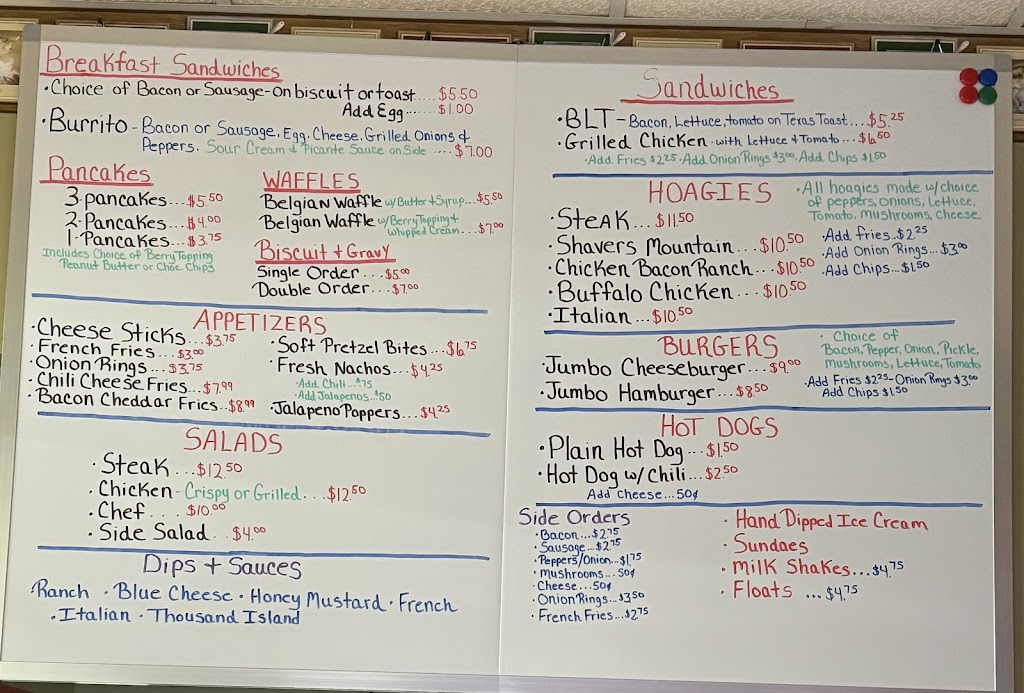 Breakfast Sandwiches
·Choice of Bacon or Sausage-On biscuit or toast.....$5.50
Add Egg......$1.00
·Burrito-Bacon or Sausage, Egg, Cheese, Grilled Onions &
Peppers. Sour Cream & Picante Sauce on Side ....$7.00
Pancakes
3-pancakes...$5.50
2-Pancakes...$4.00
1-Pancakes...$3.75
Includes Choice of Berry Topping
Peanut Butter or Choc. Chips
WAFFLES
Belgian Waffle w/Butter+Syrup...$5.50
Belgian Waffle w/Berry Topping+
Whipped Cream...$7.00
Biscuit + Gravy
Single Order...$5.00
Double Order...$7.00
APPETIZERS
·Cheese Sticks...$3.75
·French Fries...$3.00
·Onion Rings...$3.75
·Chili Cheese Fries..$7.99
·Bacon Cheddar Fries..$8.99
·Soft Pretzel Bites...$6.75
·Fresh Nachos...$4.25
·Add Chili...$.75
·Add Jalapenos..$.50
·Jalapeno Poppers...$4.25
SALADS
·Steak...$12.50
·Chicken-Crispy or Grilled...$12.50
·Chef...$10.00
·Side Salad..$4.00
Dips + Sauces
·Ranch ·Blue Cheese ·Honey Mustard ·French
·Italian ·Thousand Island
Sandwiches
·BLT-Bacon, Lettuce, tomato on Texas Toast....$5.25
·Grilled Chicken-with Lettuce & Tomato...$6.50
·Add Fries $2.25 ·Add Onion Rings $3.00 ·Add Chips $1.50
HOAGIES
·All hoagies made w/choice
of peppers, onions, Lettuce,
Tomato, Mushrooms, Cheese
·Steak...$11.50
·Shavers Mountain...$10.50
·Chicken Bacon Ranch...$10.50
·Buffalo Chicken...$10.50
·Italian...$10.50
·Add fries..$2.25
·Add Onion Rings...$3.00
·Add Chips...$1.50
BURGERS
·Jumbo Cheeseburger...$9.00
·Jumbo Hamburger...$8.50
·Choice of
Bacon, Pepper, Onion, Pickle,
Mushrooms, Lettuce, Tomato
·Add Fries $2.25-Onion Rings $3.00
Add Chips $1.50
HOT DOGS
·Plain Hot Dog...$1.50
·Hot Dog w/Chili...$2.50
Add Cheese...50¢
Side Orders
·Bacon...$2.75
·Sausage...$2.75
·Peppers/Onion..$1.75
·Mushrooms...50¢
·Cheese...50¢
·Onion Rings...$3.50
·French Fries...$2.75
·Hand Dipped Ice Cream
·Sundaes
·Milk Shakes...$4.75
·Floats ...$4.75